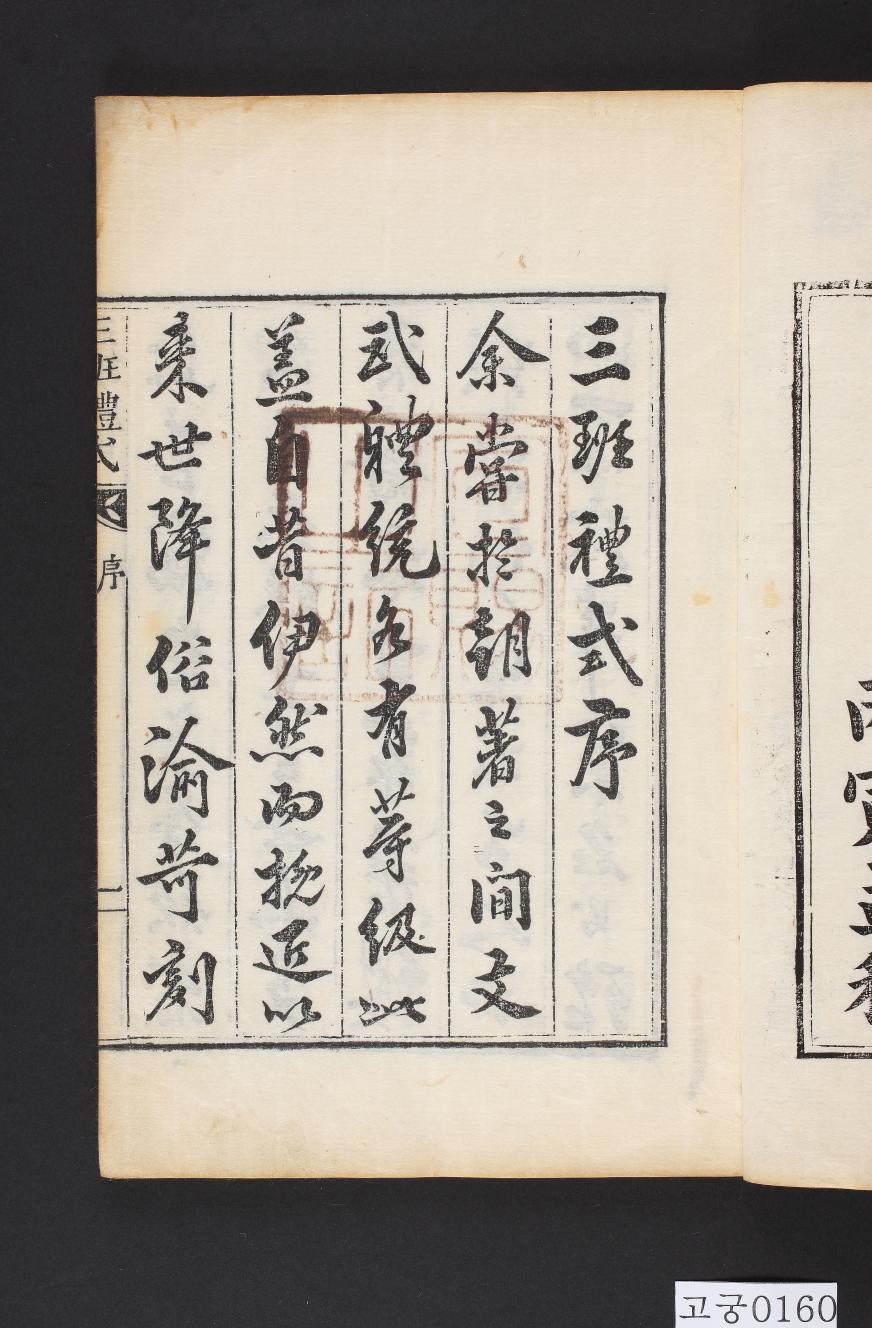 三班禮式序
余嘗於朝著之間文
武軆統各有等級此
盖自昔伊然而挽近以
来世降俗渝苛刻
三班禮式 序 一
고궁0160